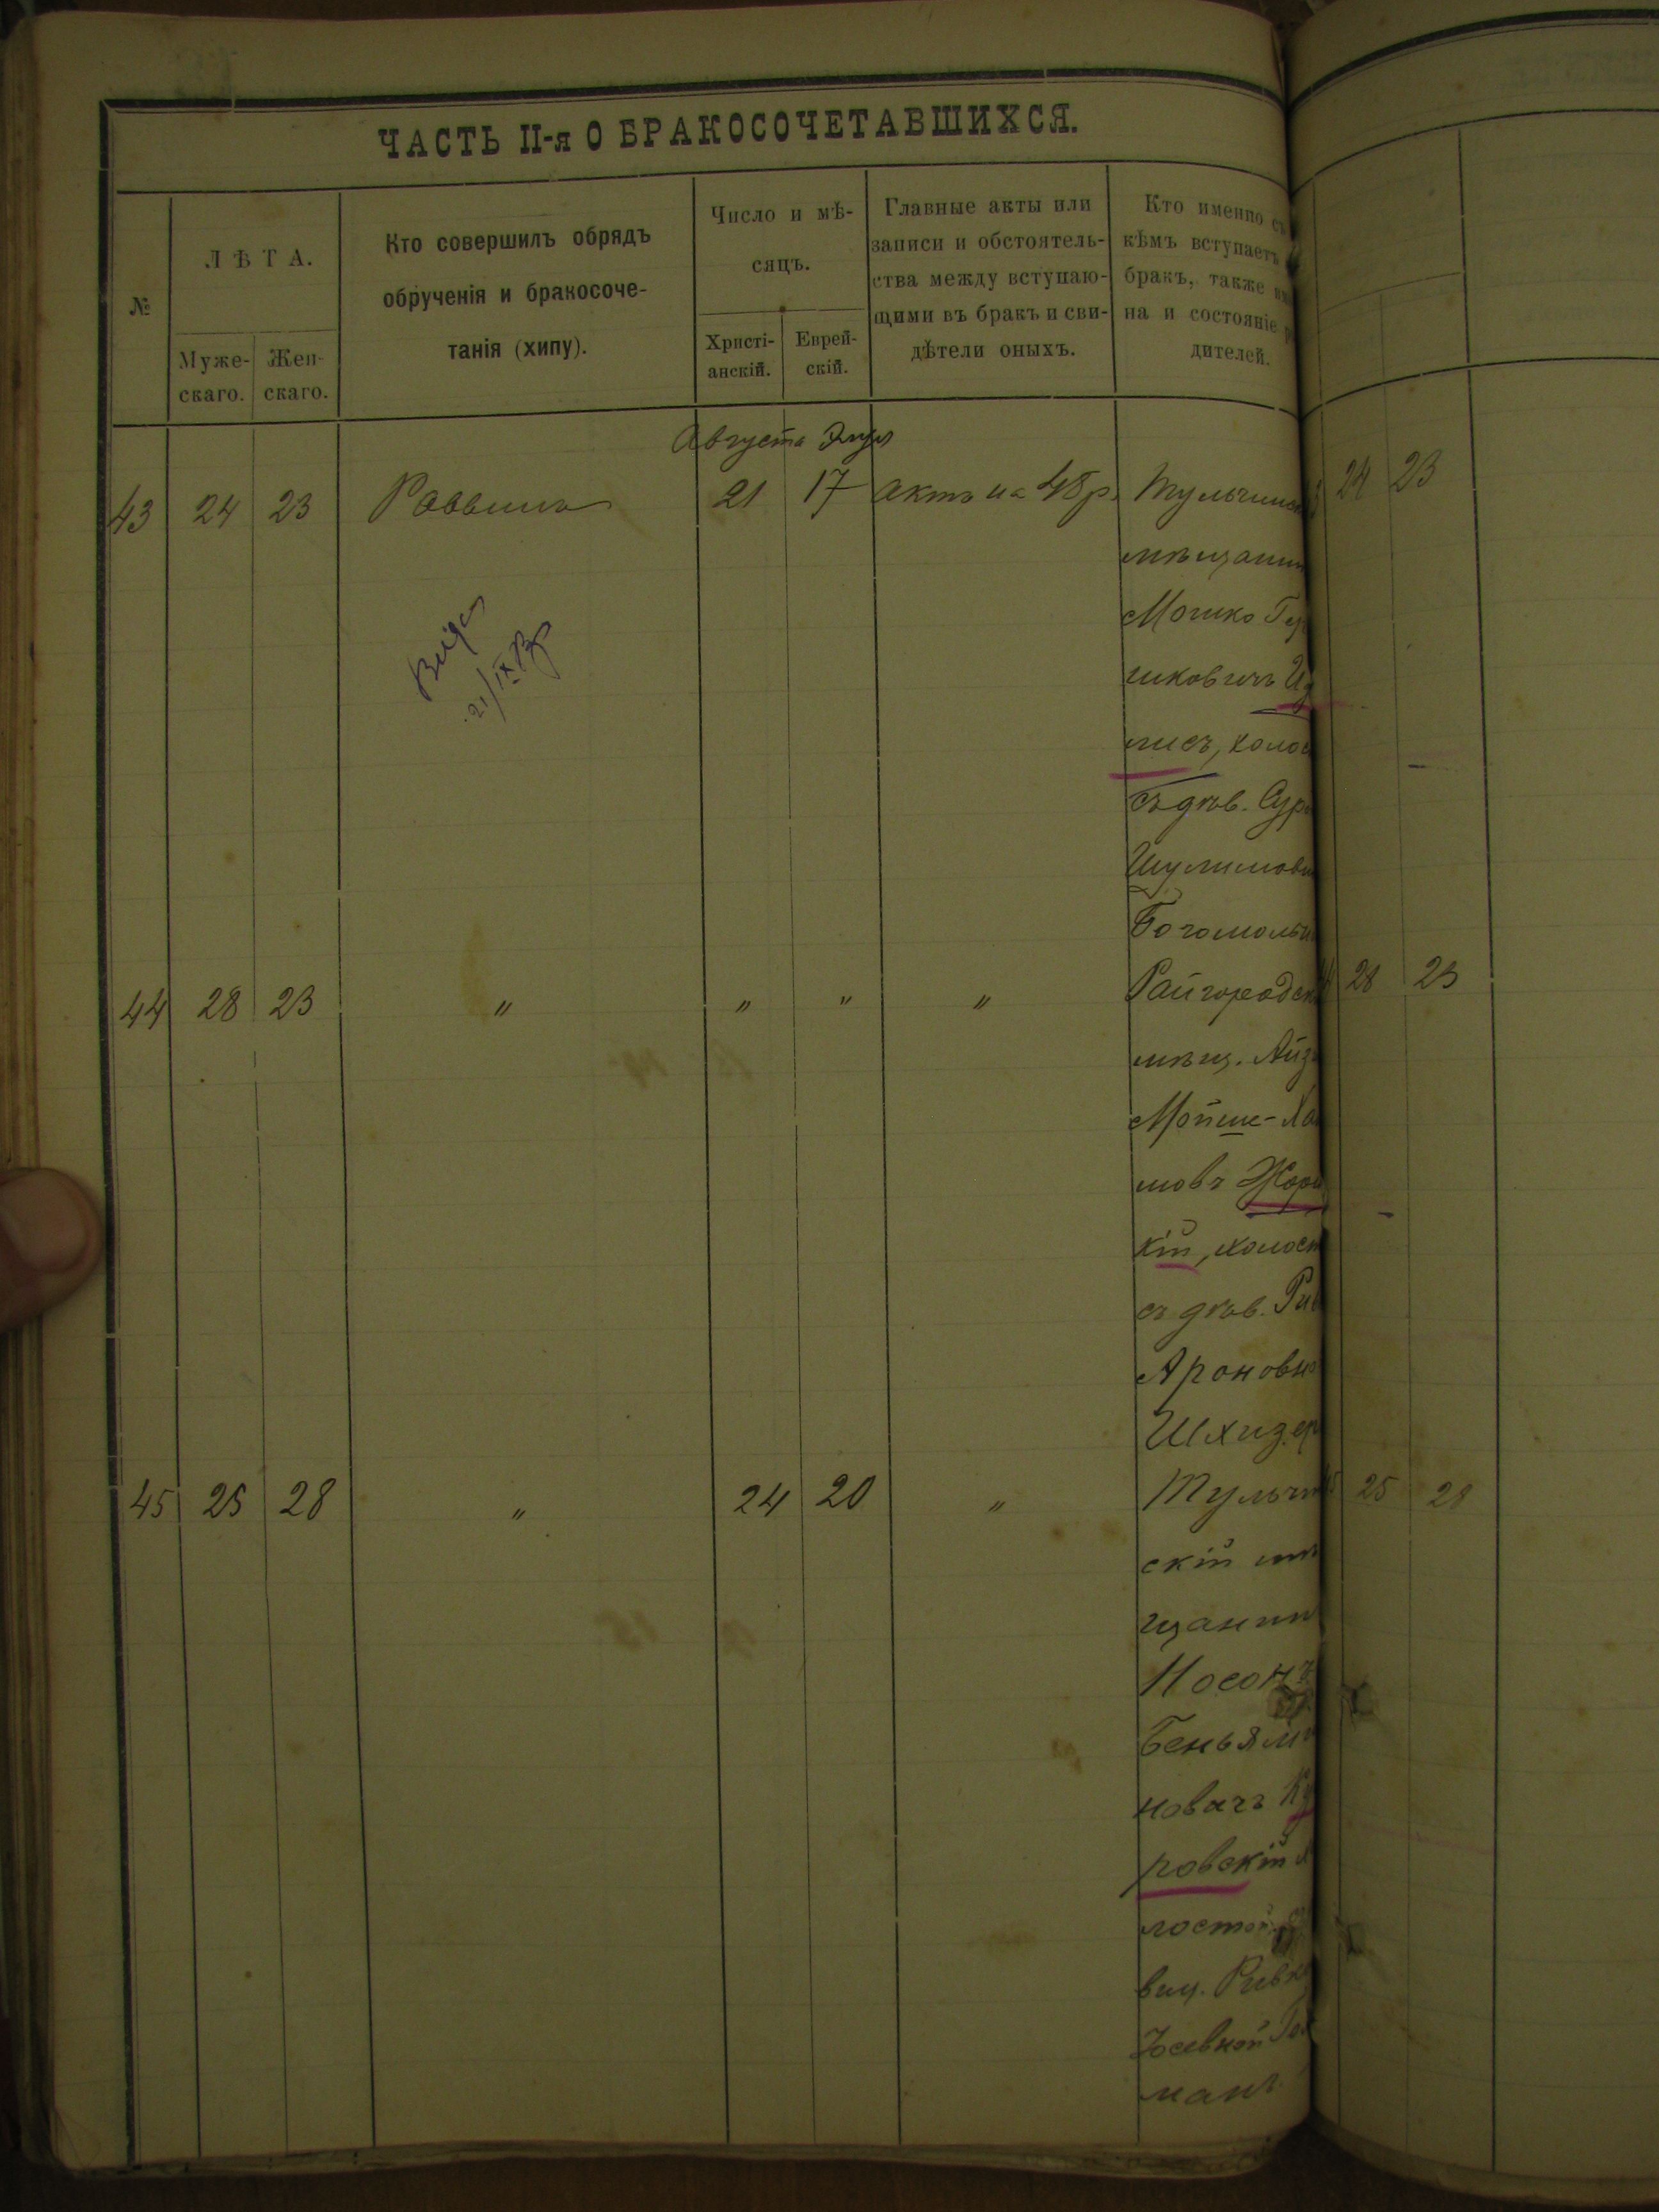 ЧАСТЬ II-я О БРАКОСОЧЕТАВШИХСЯ.
№
ЛѢТА.
Муже-
скаго.
Жен-
скаго.
Кто совершилъ обрядъ
обрученія и бракосоче-
танія (хипу).
Число и мѣ-
сяцъ.
Христі-
анскій.
Еврей-
скій.
Главные акты или
записи и обстоятель-
ства между вступаю-
щими въ бракъ и сви-
дѣтели оныхъ.
Кто именно съ
кѣмъ вступаетъ
бракъ, также
на и состояніе
дителей.
Августа Элул
43 24 23 Раввинъ 21 17 актъ на 48 р. Тульчинск
мѣщанин
Мошко Гер
шковичъ
лисъ, холос
съ дѣв. Сур
Шулимовн
Богомольн
44 28 23 " " " " Райгородск
мѣщ. Айз
Мойше-Ха
мовъ Жорн
кій, холост
съ дѣв. Рив
Ароновно
Шхизер
45 25 28 " 24 20 " Тульчин
скій мѣ
щанин
Носонъ
Беньями
новичъ Ку
ровскій х
лостой
виц. Ривк
Іосевной Гол
манъ
Видел
21/IX
24 23
28 23
25 28